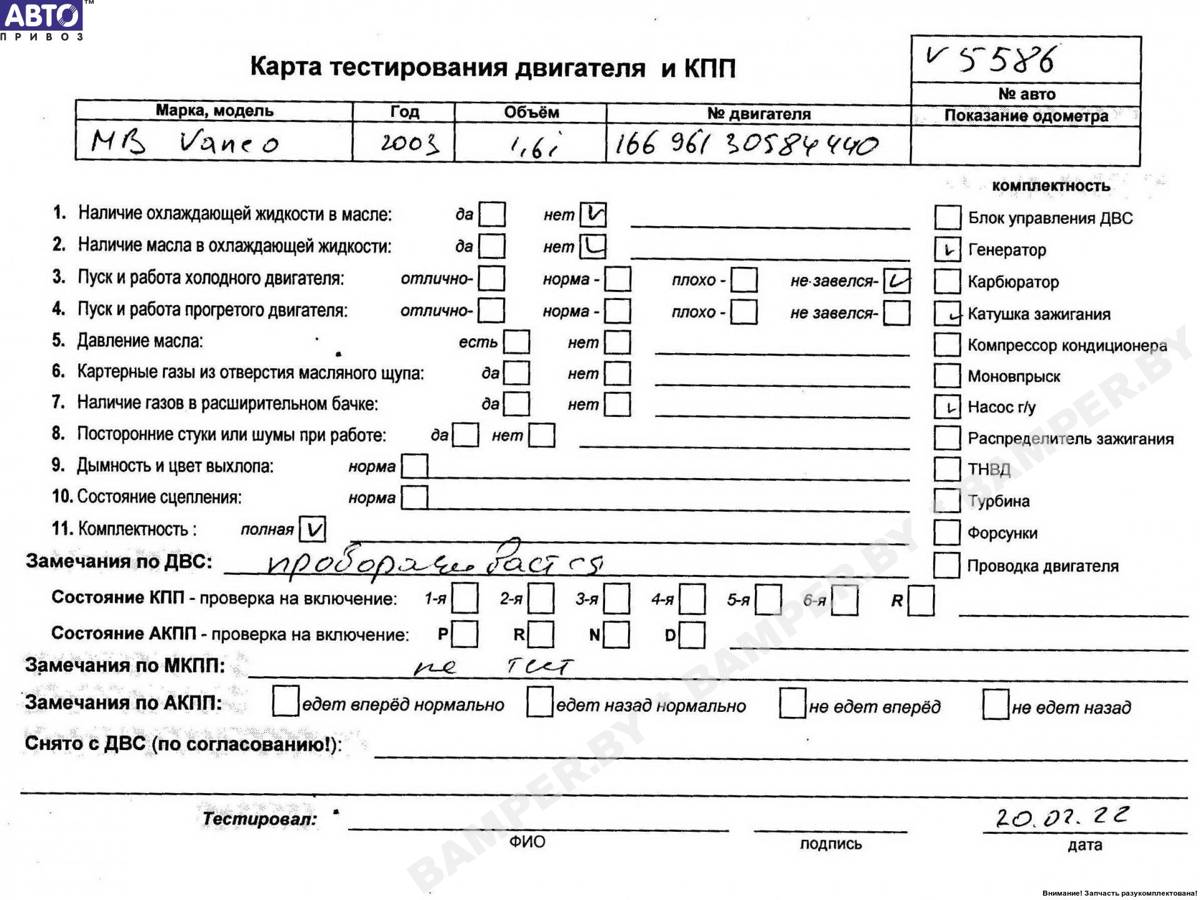 АВТО™
ПРИВОЗ
Карта тестирования двигателя и КПП
V5586
№ авто
Марка, модель Год Объём № двигателя Показание одометра
MB Vaneo 2003 1,6i 166 961 30584440
комплектность
1. Наличие охлаждающей жидкости в масле: да нет V
Блок управления ДВС
2. Наличие масла в охлаждающей жидкости: да нет V
V Генератор
3. Пуск и работа холодного двигателя: отлично- норма - плохо - не завелся- V
Карбюратор
4. Пуск и работа прогретого двигателя: отлично- норма - плохо - не завелся-
V Катушка зажигания
5. Давление масла: есть нет
Компрессор кондиционера
6. Картерные газы из отверстия масляного щупа: да нет
Моновпрыск
7. Наличие газов в расширительном бачке: да нет
V Насос г/у
8. Посторонние стуки или шумы при работе: да нет
Распределитель зажигания
9. Дымность и цвет выхлопа: норма
ТНВД
10. Состояние сцепления: норма
Турбина
11. Комплектность : полная V
Форсунки
Замечания по ДВС: проборачивастся
Проводка двигателя
Состояние КПП - проверка на включение: 1-я 2-я 3-я 4-я 5-я 6-я R
Состояние АКПП - проверка на включение: P R N D
Замечания по МКПП: не тест
Замечания по АКПП: едет вперёд нормально едет назад нормально не едет вперёд не едет назад
Снято с ДВС (по согласованию!):
Тестировал: 20.02.22
ФИО подпись дата
BAMPER.BY • BAMPER.BY • BAMPER.BY
Внимание! Запчасть разукомплектована!